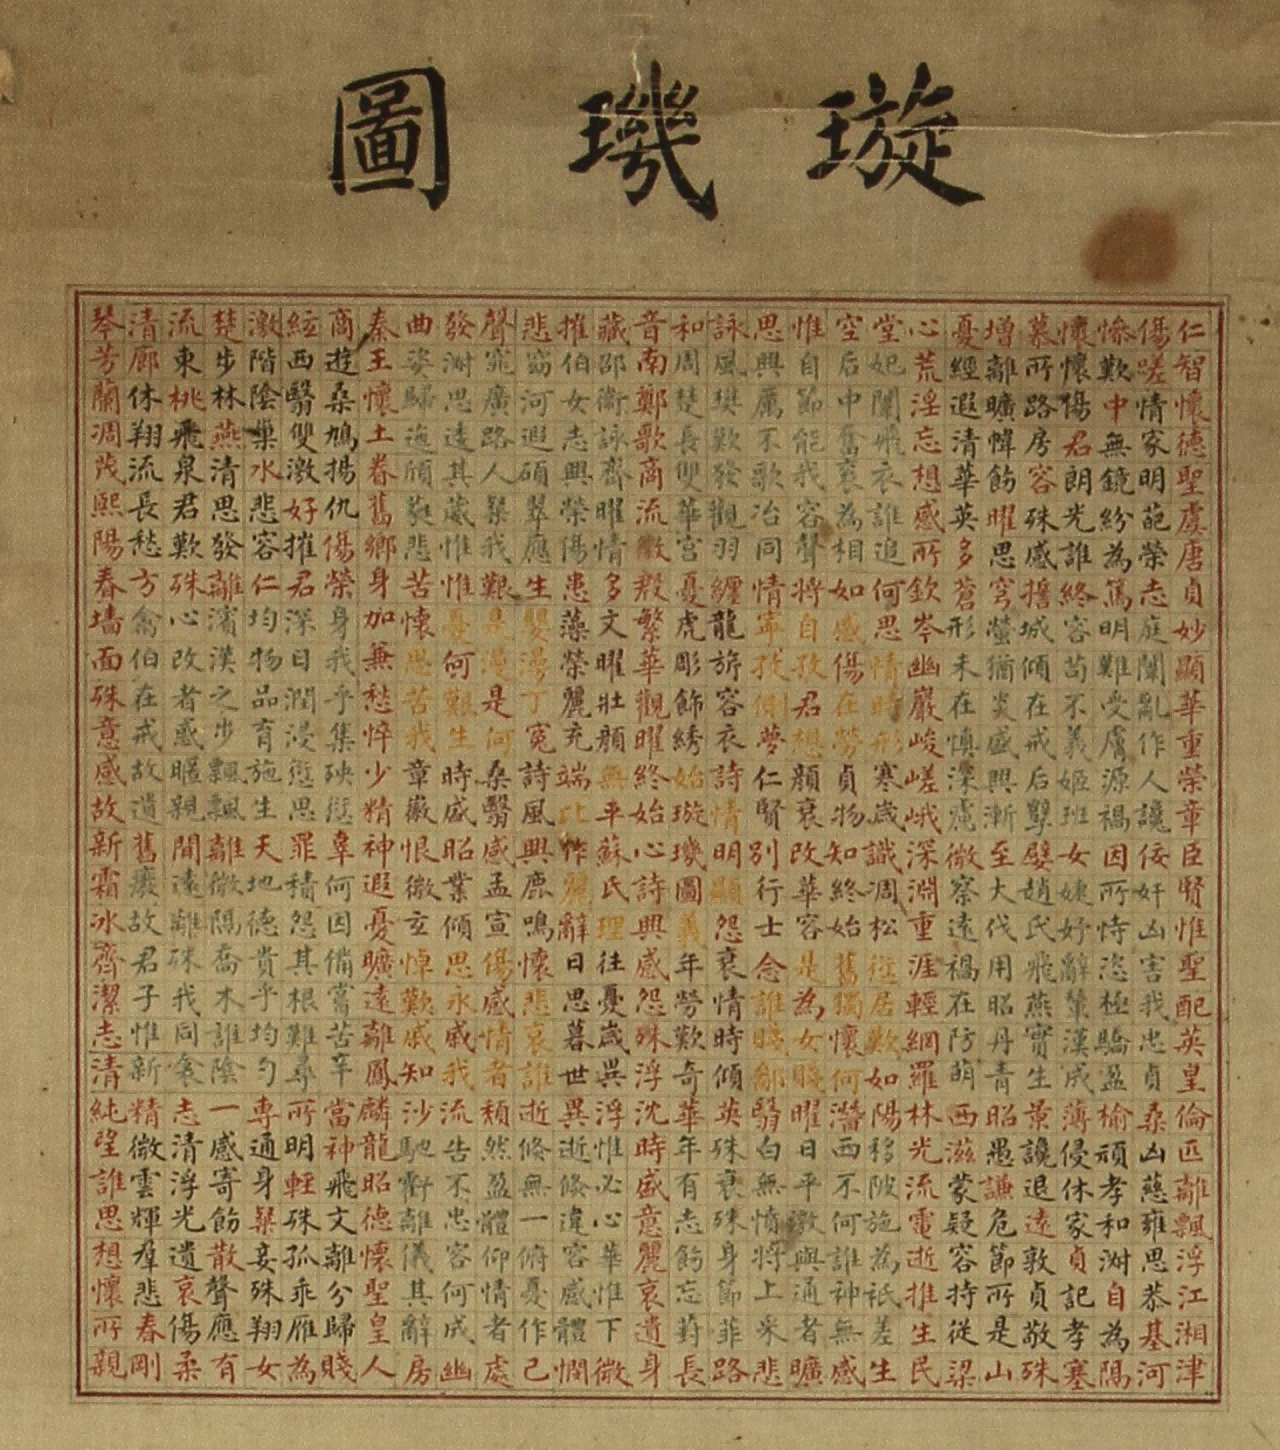 璇璣圖
仁智懷德聖虞唐貞妙顯華重榮章臣賢惟聖配英皇倫匹離飄浮江湘津
傷嗟情家明葩榮志庭闈亂作人讒佞奸凶害我忠貞桑凶慈雍思恭基河
慘歎中無鏡紛為篤明難受膚源禍因所恃恣極驕盈榆頑孝和淑自為隅
懷懷傷君朗光誰終容苟不義姬班女婕妤辭輦漢成薄侵休家貞記孝塞
慕所路房容珠感誓城傾在戒后孽嬖趙氏飛燕實生景讒退遠敦貞敬殊
增離曠幃飾曜思穹螢猶炎盛興漸至大伐用昭丹青昭愚謙危節所是山
憂經遐清華英多蒼形未在慎深慮微察遠禍在防萌西滋蒙疑容持從梁
心荒淫忘想感所欽岑幽巖峻嵯峨深淵重涯輕網羅林光流電逝推生民
堂妃闈飛衣誰追何思情時形寒歲識凋松愆居歎如陽移陂施為祇差生
空后中奮衰為相如感傷在勞貞物知終始舊獨懷何潛西不何誰神無感
惟自節能我容聲將自孜君想顏衰改華容是為女賤曜日平微與通者曠
思興厲不歌冶同情寧孜側夢仁賢別行士念誰賤鄙翳白無憤將上采悲
詠風樊歎發觀羽纏龍旂容衣詩情明顯怨衰情時傾英殊衰殊身節菲路
和周楚長雙華宮憂虎彫飾綉始璇璣圖義年勞歎奇華年有志飾忘葑長
音南鄭歌商流徵殷繁華觀曜終始心詩興感怨殊浮沈時盛意麗哀遺身
藏邵衛詠齊曜情多文曜壯顏無平蘇氏理往憂歲異浮惟必心華惟下微
摧伯女志興榮傷患藻榮麗充端比作麗辭日思暮世異逝倏違容感體憫
悲窈河遐碩翠應生嬰漫丁冤詩風興鹿鳴懷悲哀誰逝倏無一俯憂作己
聲窕廣路人粲我艱是漫是何桑翳感孟宣傷感情者頹然盈體仰情者處
發淑思逶其葳惟惟憂何艱生時盛昭業傾思永戚我流告不忠容何成幽
曲姿歸迤頎蕤悲苦懷思苦我章徽恨微玄悼歎戚知沙馳虧離儀其辭房
秦王懷土眷舊鄉身加兼愁悴少精神遐憂曠遠離鳳麟龍昭德懷聖皇人
商遊桑鳩揚仇傷榮身我乎集殃愆辜何因備嘗苦辛當神飛文離分歸賤
絃西翳雙激好摧君深日潤浸愆思罪積怨其根難尋所明輕殊孤乖雁為
激階陰巢水悲容仁均物品育施生天地德貴乎均勻專通身粲妾殊翔女
楚步林燕清思發離濱漢之步飄飄離微隔喬木誰陰一感寄飾散聲應有
流東桃飛泉君歎殊心改者惑暱親間遠離殊我同衾志清浮光遺哀傷柔
清廊休翔流長愁方禽伯在戒故遺舊廢故君子惟新精微雲輝羣悲春剛
琴芳蘭凋茂熙陽春墻面殊意感故新霜冰齊潔志清純望誰思想懷所親